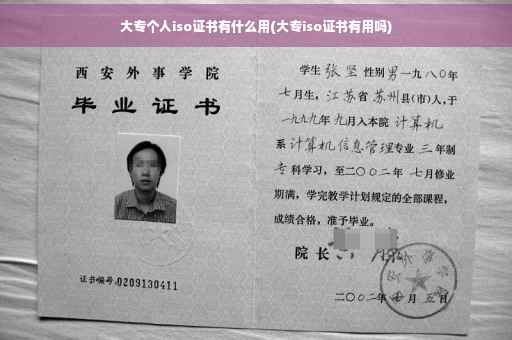 大专个人iso证书有什么用(大专iso证书有用吗)
西安外事学院
毕业证书
证书编号:0209130411
学生 张坚 性别 男 一九八〇年
七月生, 江苏省 苏州县(市)人,于
一九九九年 九月入本院 计算机
系 计算机信息管理专业 三 年制
专科学习, 至二〇〇二年 七月修业
期满, 学完教学计划规定的全部课程,
成绩合格, 准予毕业。
院长
二〇〇二年 月 五日